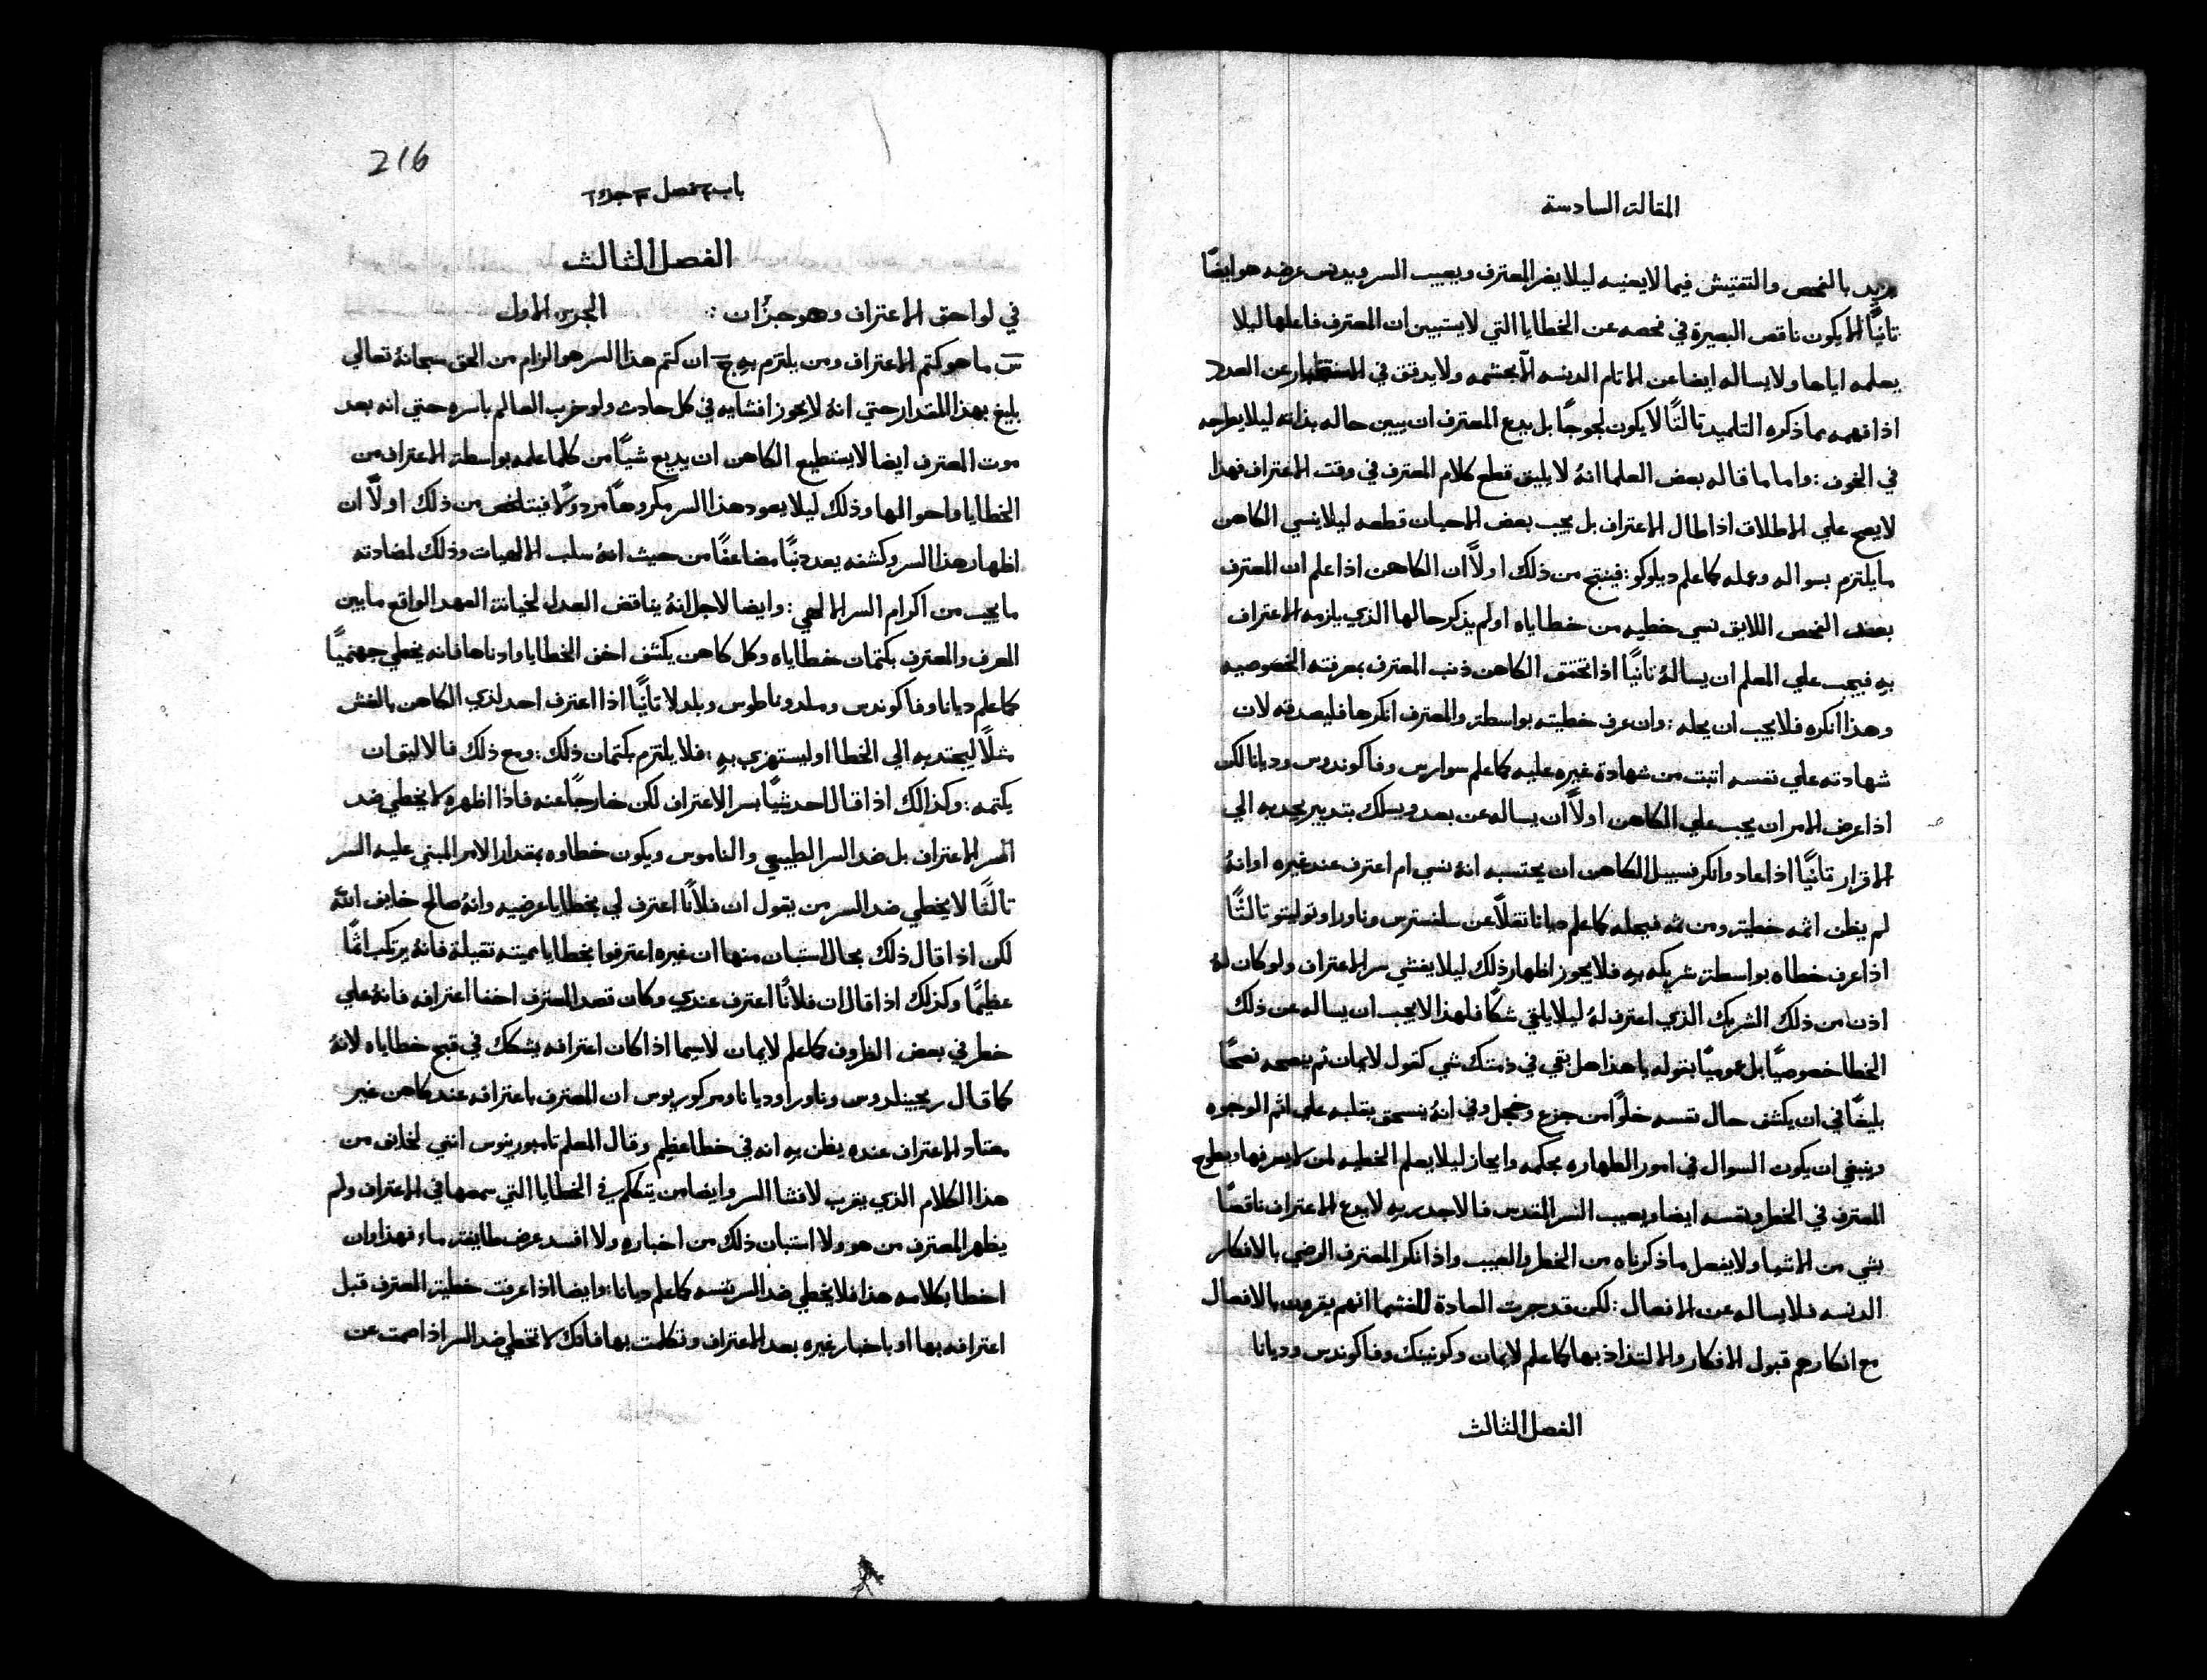 المقالة السادسة
يزيد بالفحص والتفتيش فيما لايعنيه ليلا يضر المعترف ويعيب السر ويدنس عرضه هو ايضًا
تانيًا الا يكون ناقص البصيرة في فحصه عن الخطايا التي لايستبين ان المعترف فاعلها ليلا
يعلمه اياها ولا يساله ايضا عن الاتام الدنسه الّا بحشمه ولا يدقق في عن العدد
اذا فهمه مما ذكره التلميد تالتًا لا يكون لجوجًا بل يدع المعترف ان يبين حاله بذاته ليلا يطرحه
في الخوف : واما ما قاله بعض العلما انهُ لا يليق قطع كلام المعترف في وقت الاعتراف فهذا
لا يصح علي الاطلاق اذا طال الاعتراف بل يجب بعض الاحيان قطعه ليلا ينسي الكاهن
ما يلتزم بسواله وعمله كما علم ديلوكو : فينتج من ذلك اولًا ان الكاهن اذا علم ان المعترف
بعد الفحص اللايق نسي خطيه من خطاياه او لم يذكر حالها الذي يلزمه الاعتراف
به فيجب علي المعلم ان يسالهُ تانيًا اذا تحقق الكاهن ذنب المعترف بمعرفته الخصوصيه
وهذا انكره فلا يجب ان يحله : وان عرف خطيته بواسطة والمعترف انكرها فليصدقه لان
شهادته علي نفسه اتبت من شهادة غيره عليه كما علم سوارس وفاكوندوس وديانا لكن
اذا عرض الامران يجب علي الكاهن اولًا ان يساله عن بعد ويسلك بتدبير يجديه الي
الاقرار تانيًا اذا عاد وانكر فسبيل الكاهن ان يحتسبه انهُ نسي ام اعترف عند غيره او انهُ
لم يظن اثمه خطية ومن ثمه فيحله كما علم ديانا نقلًا عن سلفسترس وناورا وتوليتو تالتًا
اذا عرف خطاه بواسطة شريكه به فلا يجوز اظهار ذلك ليلا يفشي سر الاعتراف ولو كان لهُ
اذن من ذلك الشريك الذي اعترف لهُ ليلا يلقي شكًا فلهذا لا يجب ان يساله عن ذلك
الخطا خصوصيًا بل عموميًا بقوله يا هذا هل بقي في ذمتك شي كقول لايمان ثم ينصحه نصحًا
بليغًا في ان يكشف حال نفسه خلوًا من جزع وخجل وفي انهُ ينسحق بقلبه علي اتم الوجوه
وينبغي ان يكون السوال في امور الطهاره بحكمه وايجاز ليلا يعلم الخطيه لمن لا يعرفها ويطرح
المعترف في الخطر ونفسه ايضا ويعيب السر المقدس فالاجدر به لا يدع الاعتراف ناقصًا
بشي من الاشيا ولا يفعل ما ذكرناه من الخطر والعيب واذا انكر المعترف الرضي بالافكار
الدنسه فلا يساله عن الافعال : لكن قد جرت العادة للغشما انهم يقرون بالافعال
مع انكارهم قبول الافكار والالتذاذ بها كما علم لايمان وكونينك وفاكوندس وديانا
الفصل الثالث
216
باب فصل جزء
الفصل الثالث
في لواحق الاعتراف وهو جزُان : الجزء الاول
س ما هو كتم الاعتراف ومن يلتزم به ج ان كتم هذا السر هو الزام من الحق سبحانهُ تعالي
بليغ بهذا المقدار حتي انهُ لا يجوز افشايه في كل حادث ولو خرب العالم باسره حتي انه بعد
موت المعترف ايضا لا يستطيع الكاهن ان يديع شيًا من كلما علمه بواسطة الاعتراف من
الخطايا واحوالها وذلك ليلا يعود هذا السر مكروهًا مردولًا فيتلخص من ذلك اولًا ان
اظهار هذا السر وكشفه يعد دنبًا مضاعفًا من حيث انهُ سلب الالهيات وذلك لمضادته
ما يجب من اكرام السر الالهي : وايضا لاجل انهُ يناقض العدل لخيانة العهد الواقع ما بين
المعرف والمعترف بكتمان خطاياه وكل كاهن يكشف اخف الخطايا وادناها فانه يخطي جهنميًا
كما علم ديانا وفاكوندس وملدوناطوس وبلدلا تانيًا اذا اعترف احد لدي الكاهن بالغش
مثلًا ليجتديه الي الخطا او ليستهزي به : فلا يلتزم بكتمان ذلك : ومع ذلك فالاليق ان
يكتمه : وكذالك اذا قال احد شيًا بسر الاعتراف لكن خارجًا عنه فاذا اظهره لا يخطي ضد
السر الاعتراف بل ضد السر الطبيعي والناموس ويكون خطاوه بمقدار الامر المبني عليه السر
تالتًا لا يخطي ضد السر من يقول ان فلانًا اعترف لي بخطايا عرضيه وانهُ صالح خايف اللّه
لكن اذا قال ذلك بحال استبان منها ان غيره اعترفوا بخطايا مميته تقيلة فانهُ يرتكب اثمًا
عظيمًا وكذلك اذا قال ان فلانًا اعترف عندي وكان قصد المعترف اخفا اعترافه فانهُ علي
خطر في بعض الظروف كما علم لايمان لاسيما اذا كان اعترافه يشكك في قبح خطاياه لانهُ
كما قال ريجينلدوس وناورا وديانا ومركوريوس ان المعترف باعترافه عند كاهن غير
معتاد الاعتراف عنده يظن به انه في خطا عظيم وقال المعلم تامبورينوس انني لخايف من
هذا الكلام الذي يقرب لافشا السر وايضا من يتكلم في الخطايا التي سمعها في الاعتراف ولم
يظهر المعترف من هو ولا استبان ذلك من اخباره ولا افسد عرض طايفة ماء فهذا وان
اخطا بكلامه هذا فلا يخطي ضد السر نفسه كما علم ديانا : وايضا اذا عرفت خطية المعترف قبل
اعترافه بها او باخبار غيره بعد الاعتراف وتكلمت بها فانك لا تخطي ضد السر اذا صمت عن